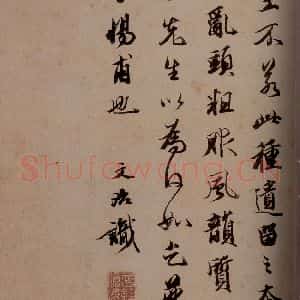 不若此種遺留之
亂頭粗服風韻質
先生以為何如乞
楊甫
文 識
Shufawang.Cn